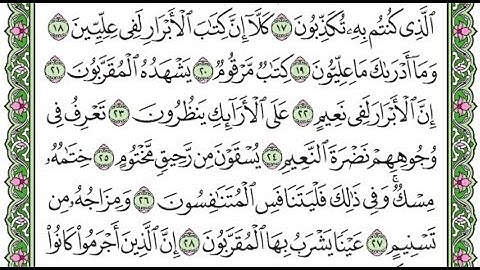 ٱلَّذِى كُنتُم بِهِۦ تُكَذِّبُونَ ١٧ كَلَّآ إِنَّ كِتَٰبَ ٱلْأَبْرَارِ لَفِى عِلِّيِّينَ ١٨
وَمَآ أَدْرَىٰكَ مَا عِلِّيُّونَ ١٩ كِتَٰبٌ مَّرْقُومٌ ٢٠ يَشْهَدُهُ ٱلْمُقَرَّبُونَ ٢١
إِنَّ ٱلْأَبْرَارَ لَفِى نَعِيمٍ ٢٢ عَلَى ٱلْأَرَآئِكِ يَنظُرُونَ ٢٣ تَعْرِفُ فِى
وُجُوهِهِمْ نَضْرَةَ ٱلنَّعِيمِ ٢٤ يُسْقَوْنَ مِن رَّحِيقٍ مَّخْتُومٍ ٢٥ خِتَٰمُهُۥ
مِسْكٌ ۚ وَفِى ذَٰلِكَ فَلْيَتَنَافَسِ ٱلْمُتَنَٰفِسُونَ ٢٦ وَمِزَاجُهُۥ مِن
تَسْنِيمٍ ٢٧ عَيْنًا يَشْرَبُ بِهَا ٱلْمُقَرَّبُونَ ٢٨ إِنَّ ٱلَّذِينَ أَجْرَمُوا۟ كَانُوا۟